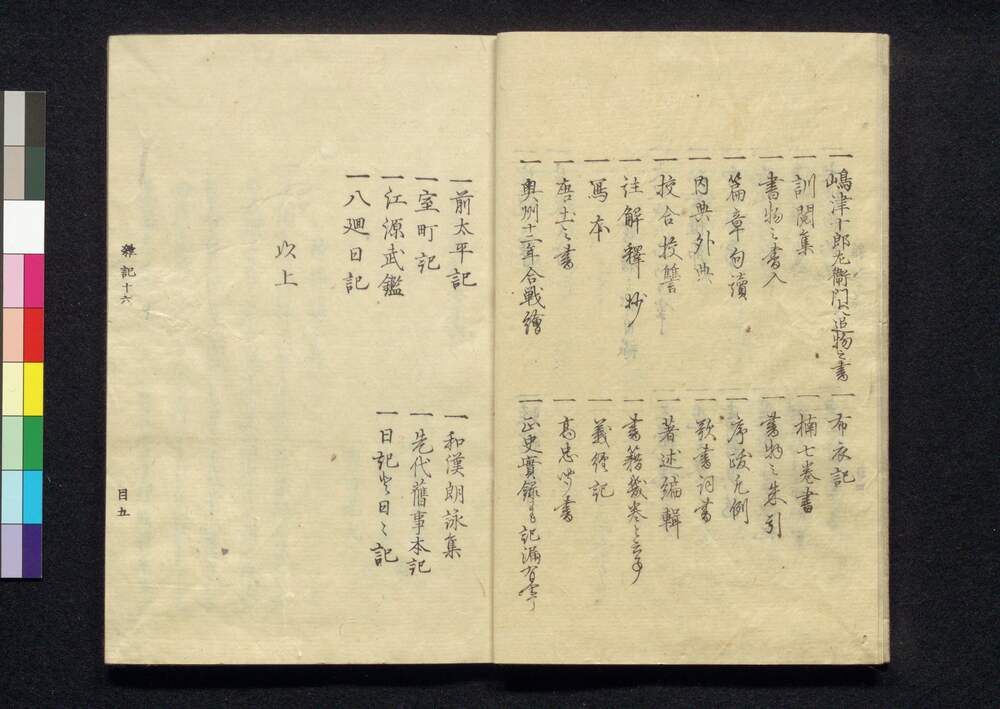 一嶋津十郎左衛門犬追物之書
一布衣記
一訓閲集
一楠七巻書
一書物之書入
一書物之朱引
一篇章句讀
一序跋凡例
一内典外典
一歌書詞書
一校合校讐
一著述編輯
一註解釋抄
一書籍幾巻と云事
一寫本
一義經記
一唐土之書
一高忠聞書
一奥州十二年合戦繪
一正史實録にも記漏有事
一前太平記
一和漢朗詠集
一室町記
一先代舊事本記
一江源武鑑
一日記と日々記
一八廻日記
以上
雜記十六
目五